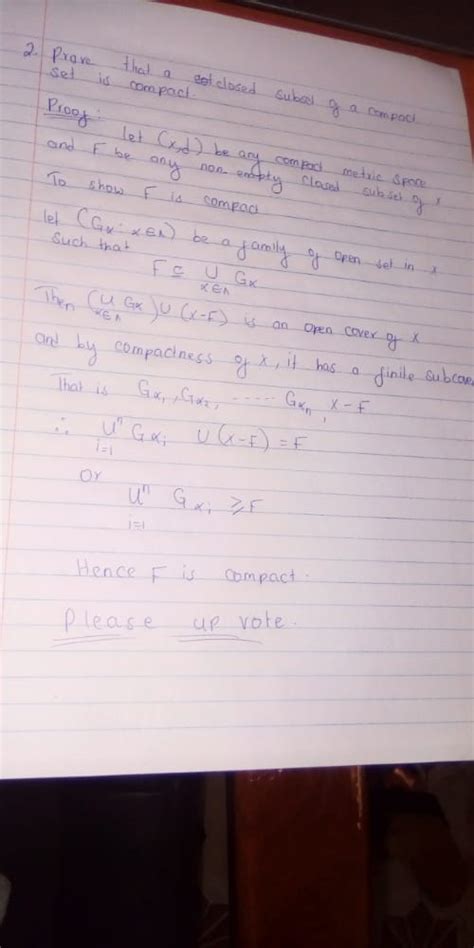 2. Prove that a closed subset of a compact
set is compact.
Proof:
let (x,d) be any compact metric space
and F be any non-empty closed subset of x
To show F is compact
let (Gα: α∈Λ) be a family of open set in x
Such that
F ⊆ ∪ Gα
α∈Λ
Then (∪ Gα) ∪ (x-F) is an open cover of x
α∈Λ
and by compactness of x, it has a finite subcove
That is Gα₁, Gα₂, ..... Gαn, x-F
∴ ∪ⁿ Gαi ∪ (x-F) = F
i=1
or
∪ⁿ Gαi ⩾ F
i=1
Hence F is compact.
Please up vote.